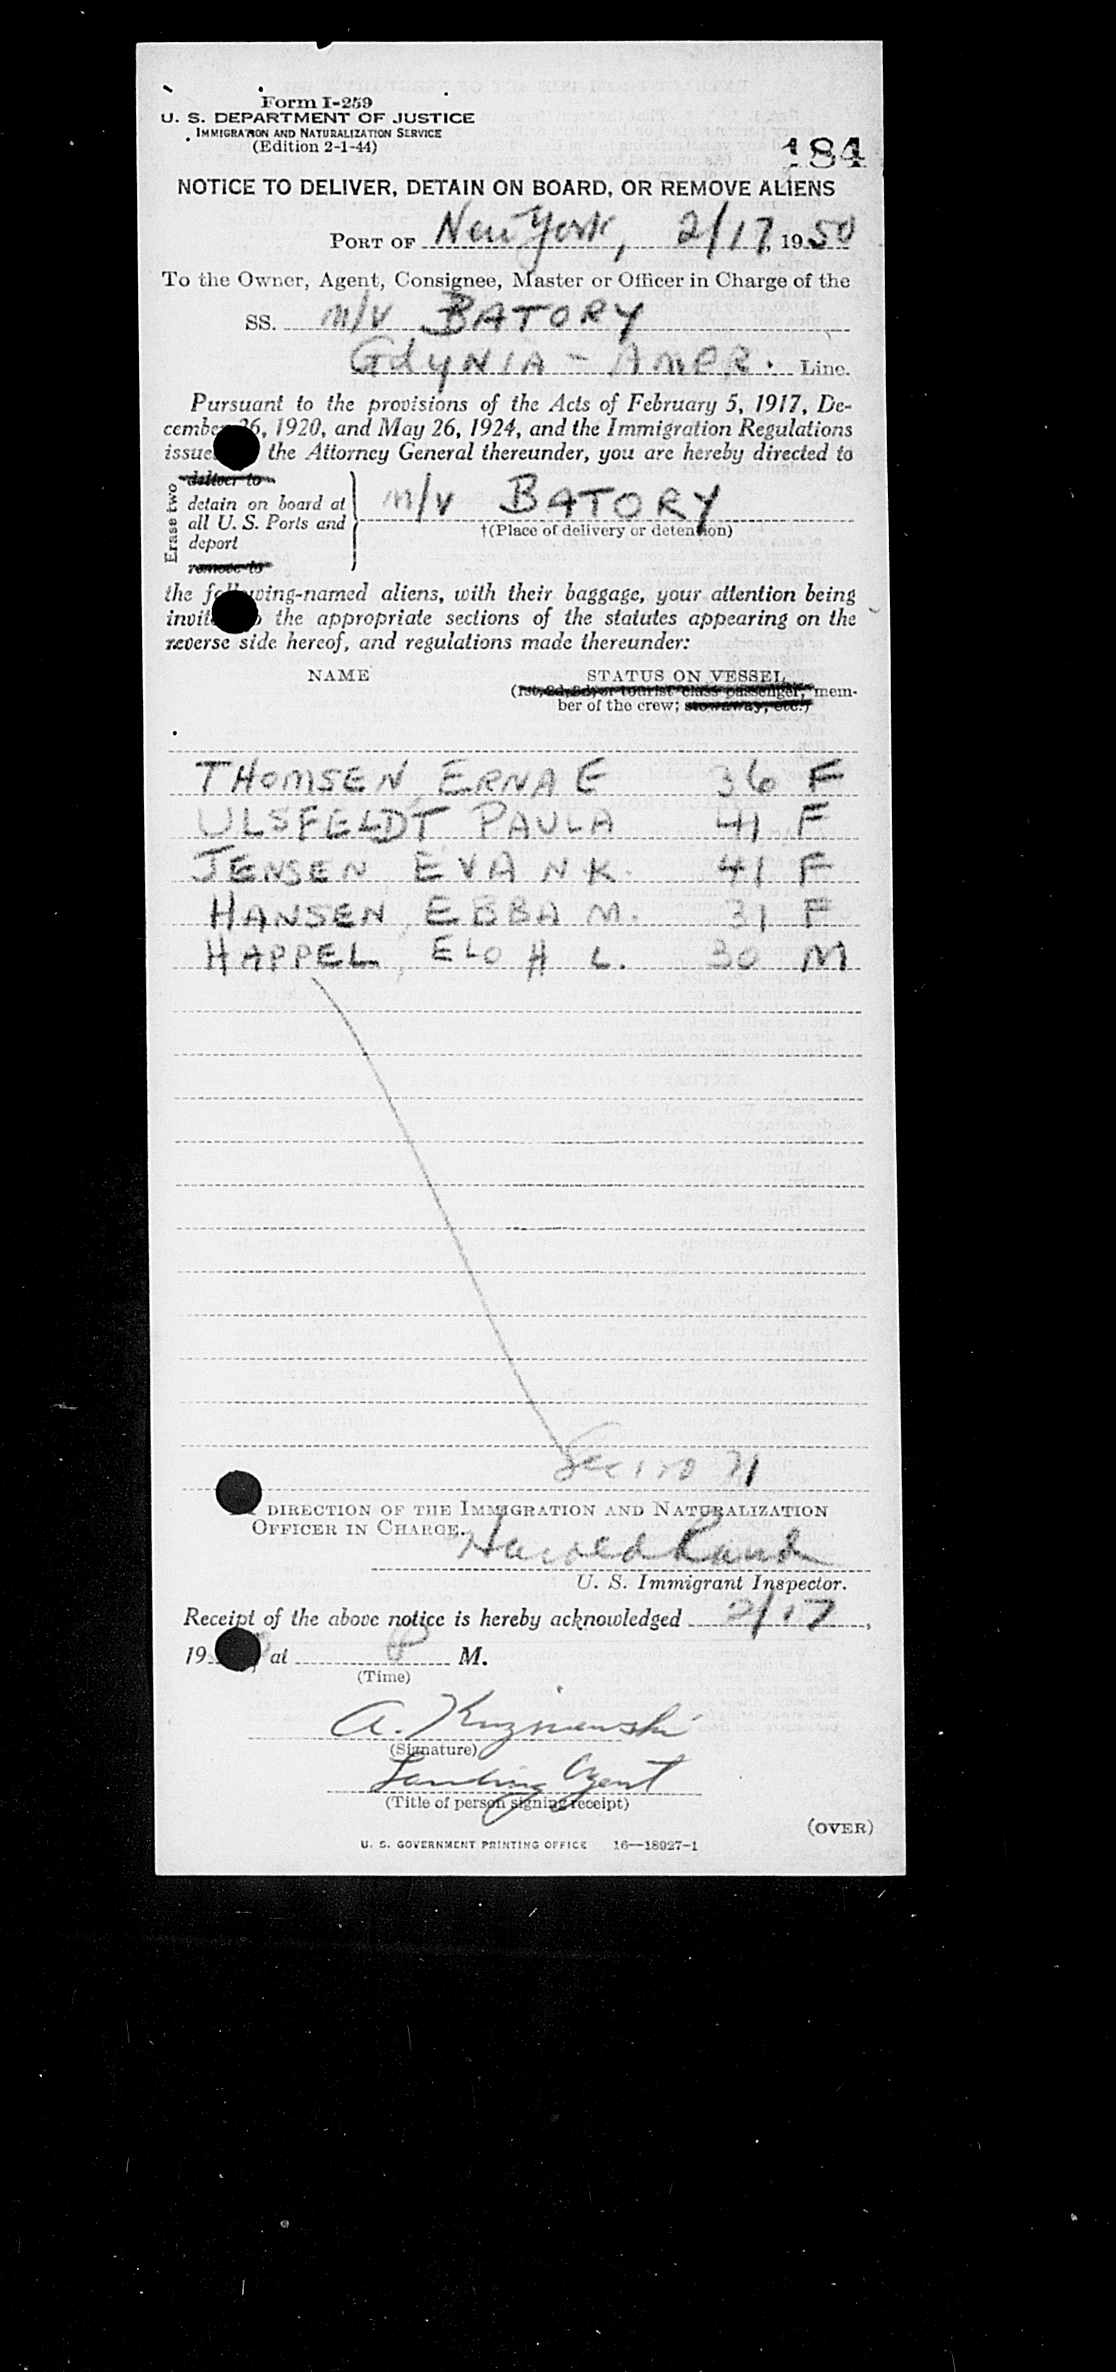 Form I-259
U. S. DEPARTMENT OF JUSTICE
IMMIGRATION AND NATURALIZATION SERVICE
(Edition 2-1-44)
184
NOTICE TO DELIVER, DETAIN ON BOARD, OR REMOVE ALIENS
PORT OF New York, 2/17, 1950
To the Owner, Agent, Consignee, Master or Officer in Charge of the
SS. M/V BATORY
GDYNIA - AMER. Line.
Pursuant to the provisions of the Acts of February 5, 1917, De-
cember 26, 1920, and May 26, 1924, and the Immigration Regulations
issued the Attorney General thereunder, you are hereby directed to
Erase two
deliver to
detain on board at
all U. S. Ports and
deport
remove to
M/V BATORY
†(Place of delivery or detention)
the following-named aliens, with their baggage, your attention being
invited the appropriate sections of the statutes appearing on the
reverse side hereof, and regulations made thereunder:
NAME STATUS ON VESSEL
(1st, 2d, 3d, or tourist class passenger, mem-
ber of the crew; stowaway, etc.)
THOMSEN, ERNA E 36 F
ULSFELDT PAULA 41 F
JENSEN EVA N.K. 41 F
HANSEN, EBBA M. 31 F
HAPPEL, ELO H L. 30 M
DIRECTION OF THE IMMIGRATION AND NATURALIZATION
OFFICER IN CHARGE.
Harold Rand
U. S. Immigrant Inspector.
Receipt of the above notice is hereby acknowledged 2/17,
19 at P M.
(Time)
A. Kuzniewski
(Signature)
Landing Agent
(Title of person signing receipt)
(OVER)
U. S. GOVERNMENT PRINTING OFFICE 16—18927-1